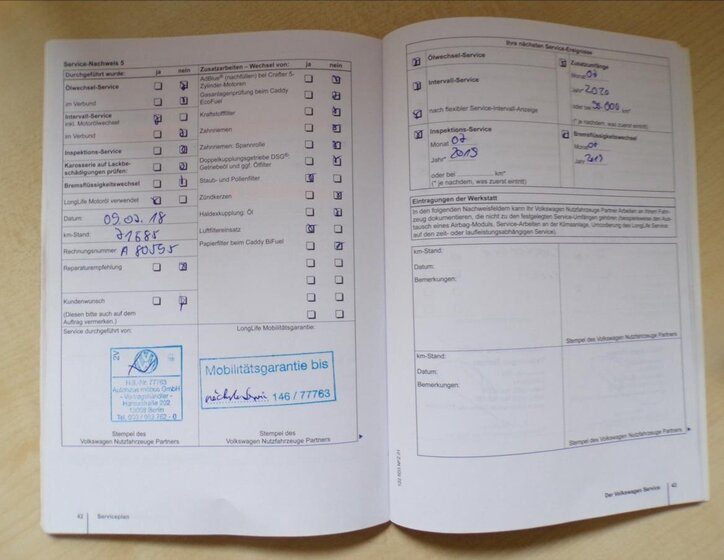 Service-Nachweis 5
Durchgeführt wurde: ja nein
Ölwechsel-Service
im Verbund
Intervall-Service
inkl. Motorölwechsel
im Verbund
Inspektions-Service
Karosserie auf Lackbe-
schädigungen prüfen:
Bremsflüssigkeitswechsel
LongLife Motoröl verwendet
Datum: 09.07.18
km-Stand: 71685
Rechnungsnummer A 80595
Reparaturempfehlung
Kundenwunsch
(Diesen bitte auch auf dem
Auftrag vermerken.)
Service durchgeführt von:
2V
H.B.-Nr. 77763
Autohaus möbus GmbH
- Vertragshändler -
Hansastraße 202
13088 Berlin
Stempel des
Volkswagen Nutzfahrzeuge Partners
Zusatzarbeiten – Wechsel von: ja nein
AdBlue® (nachfüllen) bei Crafter 5-
Zylinder-Motoren
Gasanlagenprüfung beim Caddy
EcoFuel
Kraftstofffilter
Zahnriemen
Zahnriemen: Spannrolle
Doppelkupplungsgetriebe DSG®:
Getriebeöl und ggf. Ölfilter
Staub- und Pollenfilter
Zündkerzen
Haldexkupplung: Öl
Luftfiltereinsatz
Papierfilter beim Caddy BiFuel
LongLife Mobilitätsgarantie:
Mobilitätsgarantie bis
146 / 77763
Stempel des
Volkswagen Nutzfahrzeuge Partners
42 Serviceplan
Ihre nächsten Service-Ereignisse
Ölwechsel-Service
Intervall-Service
nach flexibler Service-Intervall-Anzeige
Inspektions-Service
Monat 07
Jahr* 2019
oder bei km*
(* je nachdem, was zuerst eintritt)
Zusatzumfänge
Monat 07
Jahr 2020
oder bei 90.000 km*
(* je nachdem, was zuerst eintritt)
Bremsflüssigkeitswechsel
Monat 07
Jahr 2019
Eintragungen der Werkstatt
In den folgenden Nachweisfeldern kann Ihr Volkswagen Nutzfahrzeuge Partner Arbeiten an Ihrem Fahr-
zeug dokumentieren, die nicht zu den festgelegten Service-Umfängen gehören (beispielsweise den Aus-
tausch eines Airbag-Moduls, Service-Arbeiten an der Klimaanlage, Umcodierung des LongLife Service
auf den zeit- oder laufleistungsabhängigen Service).
km-Stand:
Datum:
Bemerkungen:
Stempel des Volkswagen Nutzfahrzeuge Partners
km-Stand:
Datum:
Bemerkungen:
Stempel des Volkswagen Nutzfahrzeuge Partners
Der Volkswagen Service 43